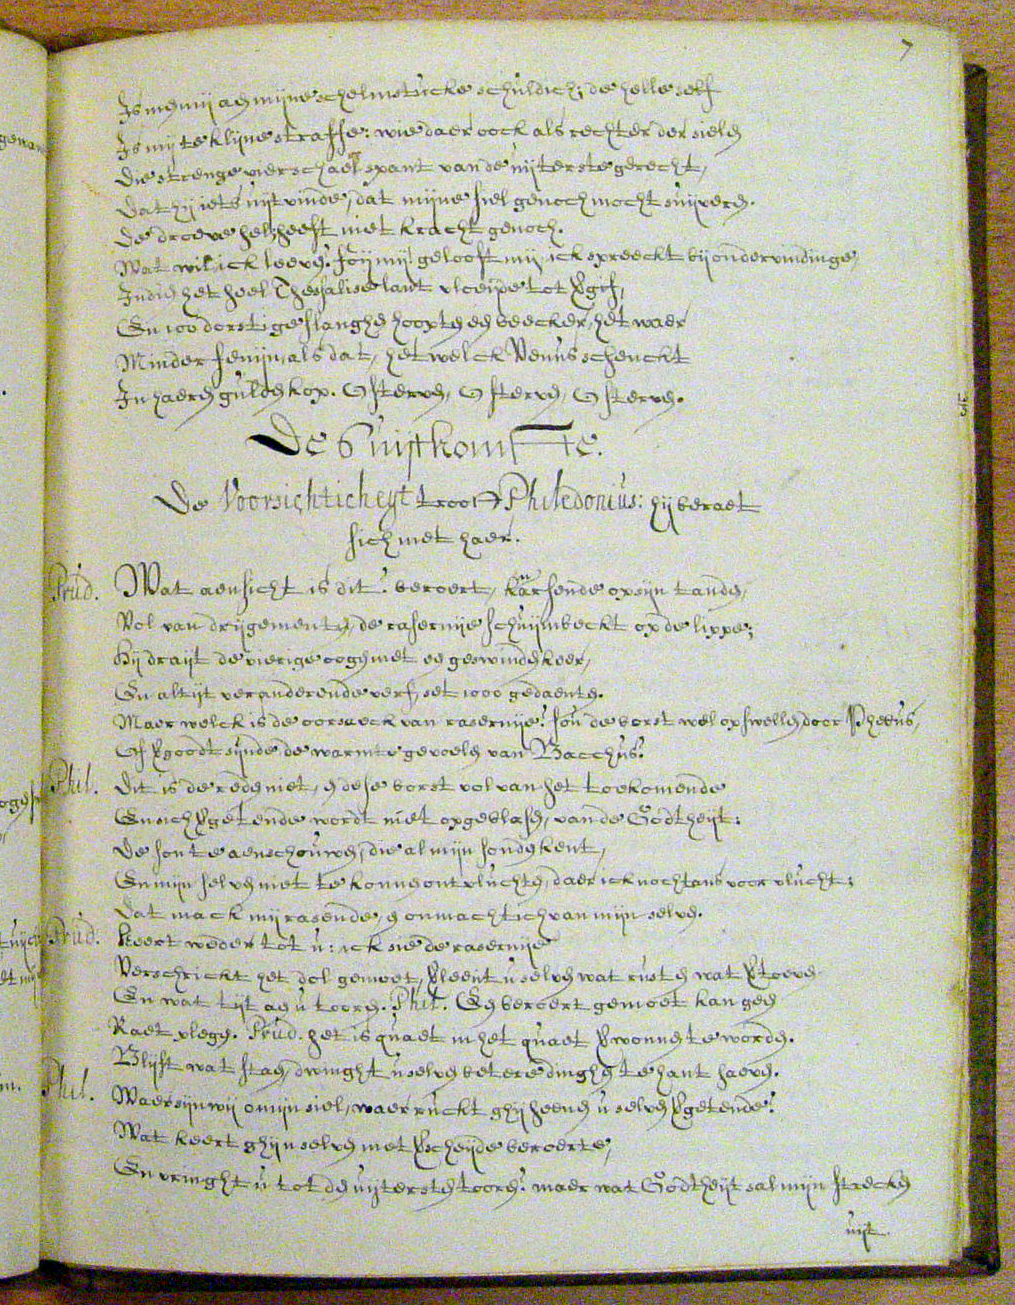 7
Is men mij aen mijne schelmstucke schuldich; de helle self
Is mij te klijne straffe: wie daer oock als rechter der sielen
Die strenge vierschaer spant van de uijterste gerecht,
Dat hij iets uijtvinde, dat mijne siel genoch mocht suijveren.
De droeve hel heeft niet kracht genoch.
Wat wil ick leeven? foij mij gelooft mij ick spreeckt bij ondervindinge
Indien het heel Thessalise lant vloeijde tot vergif,
En 100 dorstige slanghen hoopten een beecker, het waer
Minder fenijn, als dat, het welck Venus schenckt
In haeren gulden kop. O sterven, O sterven, O sterven.
De 6 uijtkomste.
De Voorsichticheyt troost Philedonius: hij beraet
sich met haer.
Prud. Wat aensicht is dit? beroert, knarsende op sijn tanden,
Vol van drijgementen, de rasernije schuijmbeckt op de lippe;
Hij draijt de vierige oogen met een geswinden keer,
En altijt veranderende verf, set 1000 gedaenten.
Maer welck is de oorsaeck van rasernije? sou de borst wel opswellen door Pheebus,
Of vergoodt sijnde de warmte gevoelen van Bacchus?
Phil. Dit is de reden niet, en dese borst vol van het toekomende
En sich vergetende wordt niet opgeblasen, van de Godtheijt:
De son te aenschouwen, die al mijn sonden kent,
En mijn selven niet te konnen ontvluchten, daer ick nochtans voor vlucht;
Dat mack mij rasende, en onmachtich van mijn selven.
Prud. Keert weder tot u: ick sie de rasernije
Verschrickt het dol gemoet, Verleent u selven wat rusten wat vertoeven
En wat tijt aen u tooren. Phil. Een beroert gemoet kan geen
Raet plegen. Prud. het is quaet in het quaet verwonnen te worden.
Blijft wat staen, dwinght u selven betere dinghen te hant haeven.
Phil. Waer sijn wij o mijn siel, waer ruckt ghij heenen u selven vergetende?
Wat keert ghij u selven met verscheijde beroerte,
En vringht u tot den uijtersten tooren? maer wat Godtheijt sal mijn strecken
uijt